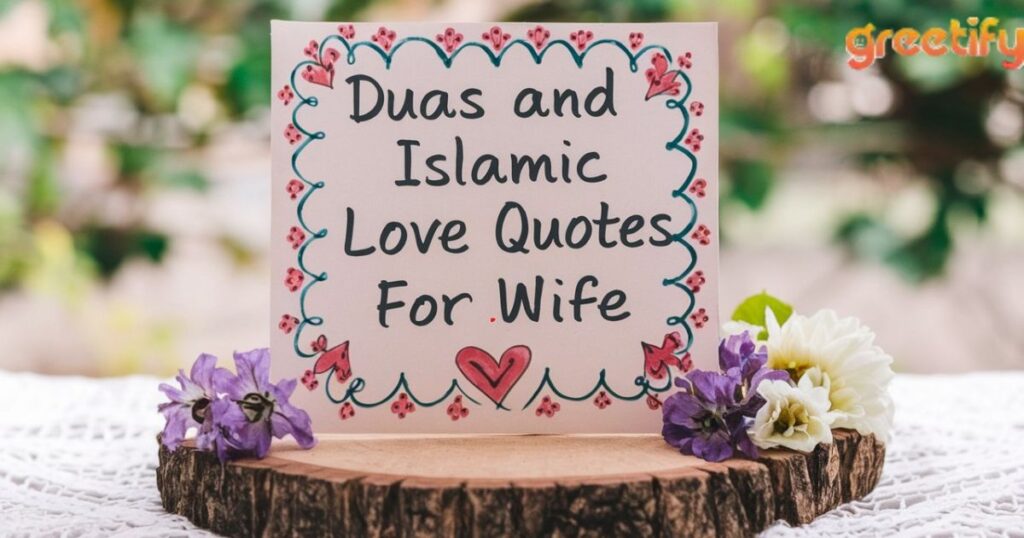 Duas and
Islamic
Love Quotes
For .Wife
greetify